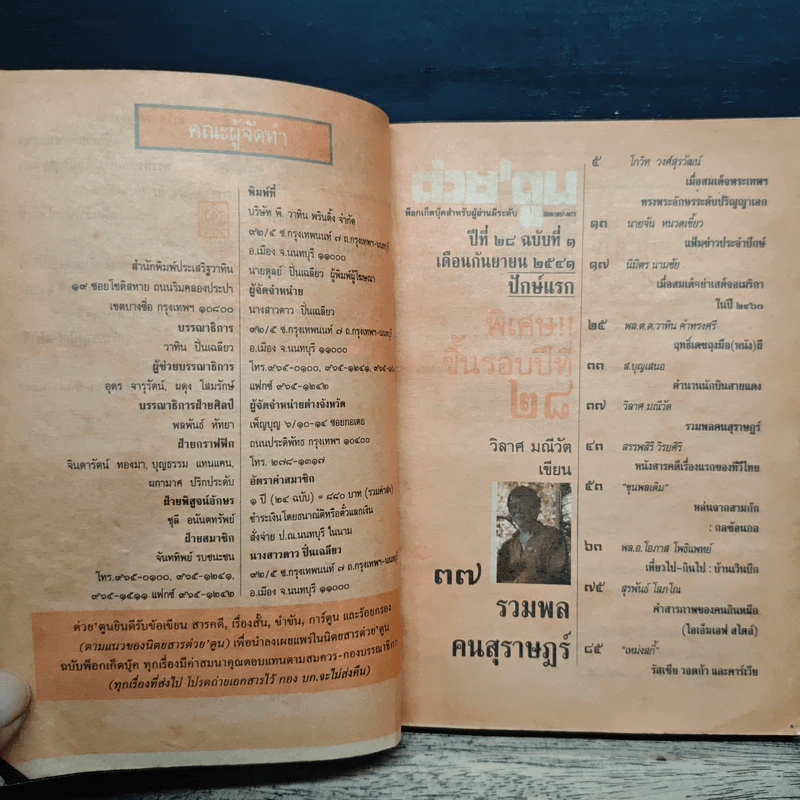 คณะผู้จัดทำ
สำนักพิมพ์ประเสริฐวาทิน
๑๙ ซอยโชติสหาย ถนนริมคลองประปา
เขตบางซื่อ กรุงเทพฯ ๑๐๘๐๐
บรรณาธิการ
วาทิน ปิ่นเฉลียว
ผู้ช่วยบรรณาธิการ
อุดร จารุรัตน์, ผดุง โสมรักษ์
บรรณาธิการฝ่ายศิลป์
พลพันธ์ หัทยา
ฝ่ายกราฟฟิก
จินดารัตน์ ทองมา, บุญธรรม แทนแคน,
ผกามาศ ปริกประดับ
ฝ่ายพิสูจน์อักษร
ชุลี อนันตทรัพย์
ฝ่ายสมาชิก
จันททิพย์ รบชนะชน
โทร.๙๖๕-๐๑๐๐, ๙๖๕-๑๒๔๑,
๙๖๕-๑๕๑๑ แฟกซ์ ๙๖๕-๑๒๔๒
พิมพ์ที่
บริษัท พี. วาทิน พรินติ้ง จำกัด
๙๒/๕ ซ.กรุงเทพนนท์ ๗ ถ.กรุงเทพฯ-นนทบุรี
อ.เมือง จ.นนทบุรี ๑๑๐๐๐
นายดุลย์ ปิ่นเฉลียว ผู้พิมพ์ผู้โฆษณา
ผู้จัดจำหน่าย
นางสาวดาว ปิ่นเฉลียว
๙๒/๕ ซ.กรุงเทพนนท์ ๗ ถ.กรุงเทพฯ-นนทบุรี
อ.เมือง จ.นนทบุรี ๑๑๐๐๐
โทร.๙๖๕-๐๑๐๐, ๙๖๕-๑๒๔๑,
แฟกซ์ ๙๖๕-๑๒๔๒
ผู้จัดจำหน่ายต่างจังหวัด
เพ็ญบุญ ๖/๑๐-๑๔ ซอยกอเตย
ถนนประดิพัทธ กรุงเทพฯ ๑๐๔๐๐
โทร. ๒๗๘-๑๓๑๗
อัตราค่าสมาชิก
๑ ปี (๒๔ ฉบับ) = ๘๘๐ บาท (รวมค่าส่ง)
ชำระเงินโดยธนาณัติหรือตั๋วแลกเงิน
สั่งจ่าย ป.ณ.นนทบุรี ในนาม
นางสาวดาว ปิ่นเฉลียว
๙๒/๕ ซ.กรุงเทพนนท์ ๗ ถ.กรุงเทพฯ-นนทบุรี
อ.เมือง จ.นนทบุรี ๑๑๐๐๐
ต่วย'ตูนยินดีรับข้อเขียน สารคดี, เรื่องสั้น, ขำขัน, การ์ตูน และร้อยกรอง
(ตามแนวของนิตยสารต่วย'ตูน) เพื่อนำลงเผยแพร่ในนิตยสารต่วย'ตูน
ฉบับพ็อกเก็ตบุ๊ค ทุกเรื่องมีค่าสมนาคุณตอบแทนตามสมควร-กองบรรณาธิการ
(ทุกเรื่องที่ส่งไป โปรดถ่ายเอกสารไว้ กอง บก.จะไม่ส่งคืน)
ต่วย'ตูน
พ็อกเก็ตบุ๊คสำหรับผู้อ่านมีระดับ
ปีที่ ๒๘ ฉบับที่ ๑
เดือนกันยายน ๒๕๔๑
ปักษ์แรก
พิเศษ!!
ขึ้นรอบปีที่
๒๘
วิลาศ มณีวัต
เขียน
๓๗
รวมพล
คนสุราษฎร์
๕ โกวิท วงศ์สุรวัฒน์
เมื่อสมเด็จพระเทพฯ
ทรงพระอักษรระดับปริญญาเอก
๑๓ นายจัน หนวดเขี้ยว
แฟ้มข่าวประจำปักษ์
๑๗ นิมิตร นามชัย
เมื่อสมเด็จย่าเสด็จอเมริกา
ในปี ๒๔๖๐
๒๕ พล.ต.ต.วาทิน คำทรงศรี
ฤทธิ์เดชถุงมือ(หนัง)ผี
๓๓ ส.บุญเสนอ
ตำนานนักบินสายแดง
๓๗ วิลาศ มณีวัต
รวมพลคนสุราษฎร์
๔๓ สรรพสิริ วิรยศิริ
หนังสารคดีเรื่องแรกของทีวีไทย
๕๓ "ขุนพลเดิม"
หล่นจากสามก๊ก
: กลซ้อนกล
๖๓ พล.อ.โอภาส โพธิแพทย์
เที่ยวไป-กินไป : บ้านเวินบึก
๗๕ สุรพันธ์ โสภโณ
คำสารภาพของคนกินหมึก
(ไอเอ็มเอฟ สไตล์)
๘๕ "เหม่งสกี้"
รัสเซีย วอดก้า และคาร์เวีย